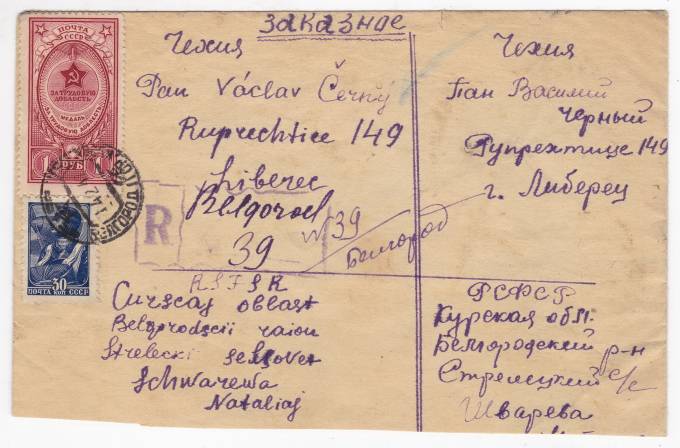 заказное
ПОЧТА
СССР
ЗА ТРУДОВУЮ
ДОБЛЕСТЬ
МЕДАЛЬ
ЗА ТРУДОВУЮ ДОБЛЕСТЬ
1 РУБ 1
30
ПОЧТА КОП СССР
Чехия
Pan Václav Černý
Ruprechtice 149
Liberec
R
Belgorod
39
№ 39
Белгород
RSFSR
Curscaj oblast
Belgorodscii raion
Strelecki selsovet
Schwarewa
Nataliaj
Чехия
Пан Василий
Черный
Рупрехтице 149
г. Либерец
РСФСР
Курская обл.
Белгородский р-н
Стрелецкий с/с
Шварева